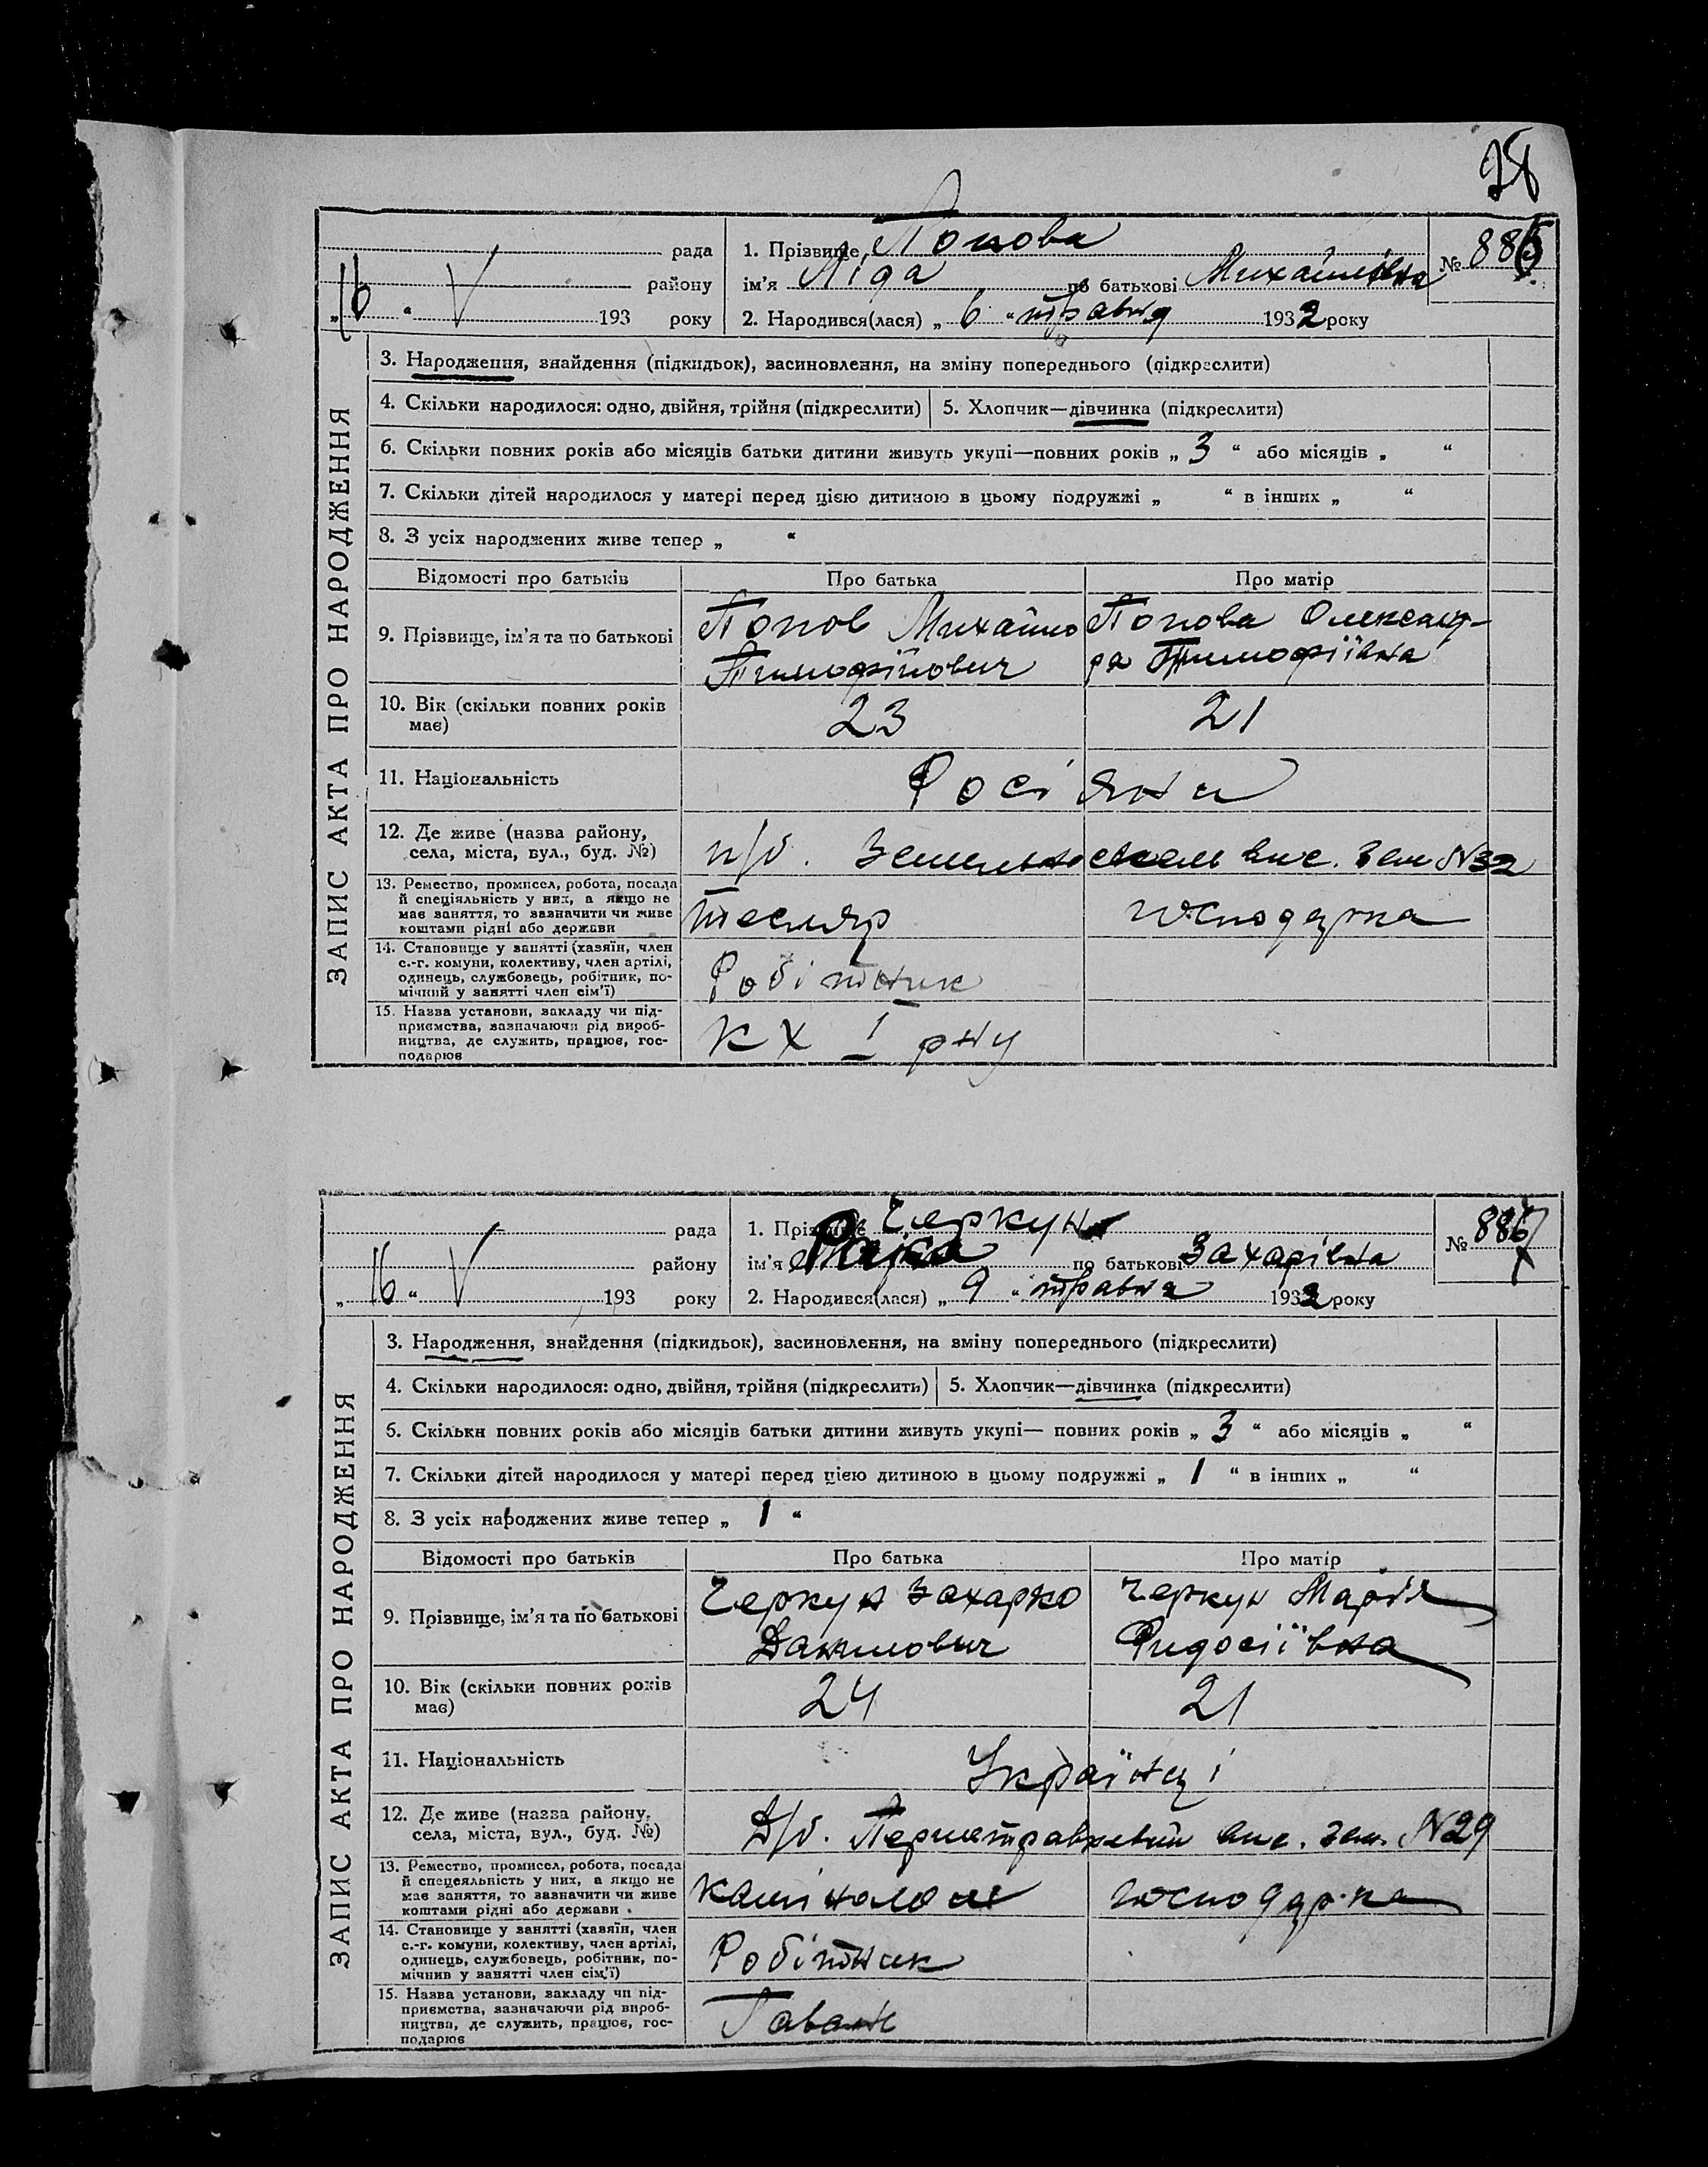 28
рада
району
„16“ V 193 року
1. Прізвище Попова
ім'я Ліда по батькові Михайлівна
№ 886
2. Народився(лася) „6“ травня 1932 року
ЗАПИС АКТА ПРО НАРОДЖЕННЯ
3. Народження, знайдення (підкидьок), засиновлення, на зміну попереднього (підкреслити)
4. Скільки народилося: одно, двійня, трійня (підкреслити) 5. Хлопчик—дівчинка (підкреслити)
6. Скільки повних років або місяців батьки дитини живуть укупі—повних років „3“ або місяців „ “
7. Скільки дітей народилося у матері перед цією дитиною в цьому подружжі „ “ в інших „ “
8. З усіх народжених живе тепер „ “
Відомості про батьків Про батька Про матір
9. Прізвище, ім'я та по батькові
Попов Михайло
Тимофійович
Попова Олексан-
дра Тимофіївна
10. Вік (скільки повних років
має)
23 21
11. Національність
Росіяни
12. Де живе (назва району,
села, міста, вул., буд. №)
п/б. вис. Зем №32
13. Ремество, промисел, робота, посада
й спеціяльність у них, а якщо не
має заняття, то зазначити чи живе
коштами рідні або держави
тесляр господарка
14. Становище у занятті (хазяїн, член
с.-г. комуни, колективу, член артілі,
одинець, службовець, робітник, по-
мічний у занятті член сім'ї)
Робітник
15. Назва установи, закладу чи під-
приємства, зазначаючи рід вироб-
ництва, де служить, працює, гос-
подарює
КХ I рну
рада
району
„16“ V 193 року
1. Прізвище Черкун
ім'я по батькові Захарівна
№ 887
2. Народився(лася) „9“ травня 1932 року
ЗАПИС АКТА ПРО НАРОДЖЕННЯ
3. Народження, знайдення (підкидьок), засиновлення, на зміну попереднього (підкреслити)
4. Скільки народилося: одно, двійня, трійня (підкреслить) 5. Хлопчик—дівчинка (підкреслити)
6. Скільки повних років або місяців батьки дитини живуть укупі— повних років „3“ або місяців „ “
7. Скільки дітей народилося у матері перед цією дитиною в цьому подружжі „1“ в інших „ “
8. З усіх народжених живе тепер „1“
Відомості про батьків Про батька Про матір
9. Прізвище, ім'я та по батькові
Черкун Захарко
Данилович
Черкун Марія
Фидосіївна
10. Вік (скільки повних років
має)
24 21
11. Національність
Українці
12. Де живе (назва району,
села, міста, вул., буд. №)
Д/б. Першетравневий вис. Зем. №29
13. Ремество, промисел, робота, посада
й спецеяльність у них, а якщо не
має заняття, то зазначити чи живе
коштами рідні або держави
господарка
14. Становище у занятті (хазяїн, член
с.-г. комуни, колективу, член артілі,
одинець, службовець, робітник, по-
мічник у занятті член сім'ї)
Робітник
15. Назва установи, закладу чи під-
приємства, зазначаючи рід вироб-
ництва, де служить, працює, гос-
подарює
Гавань